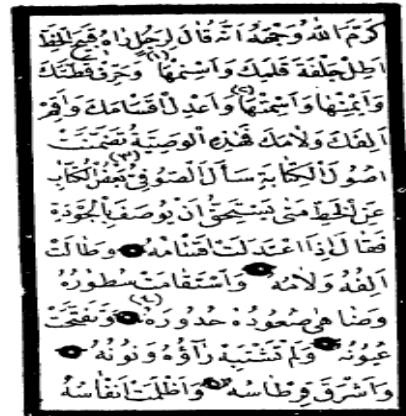 كَرَّمَ اللهُ وَجْهَهُ اَنَّهُ قَالَ لِرَجُلٍ رَاٰهُ قَبِيحَ الْخَطِّ
اَطِلْ جَلْفَةَ قَلَمِكَ وَاَسْمِنْهَا (١) وَحَرِّفْ قَطَّتَكَ
وَاَيْمِنْهَا وَاَسْمِتْهَا (٢) وَاعْدِلْ اَقْسَامَكَ وَاَقِمْ
اَلِفَكَ وَلَامَكَ فَهٰذِهِ الْوَصِيَّةُ تَضَمَّنَتْ
اُصُولَ الْكِتَابَةِ سَأَلَ الصُّوفِيُّ (٣) بَعْضَ الْكُتَّابِ
عَنِ الْخَطِّ مَتٰى يَسْتَحِقُّ اَنْ يُوصَفَ بِالْجَوْدَةِ
فَقَالَ اِذَا اعْتَدَلَتْ اَقْسَامُهُ وَطَالَتْ
اَلِفُهُ وَلَامُهُ وَاسْتَقَامَتْ سُطُورُهُ
وَضَاهٰى صُعُودُهُ حُدُورَهُ (٤) وَتَفَتَّحَتْ
عُيُونُهُ وَلَمْ تَشْتَبِهْ رَاؤُهُ وَنُونُهُ
وَاَشْرَقَ قِرْطَاسُهُ وَاَظْلَمَتْ اَنْقَاسُهُ